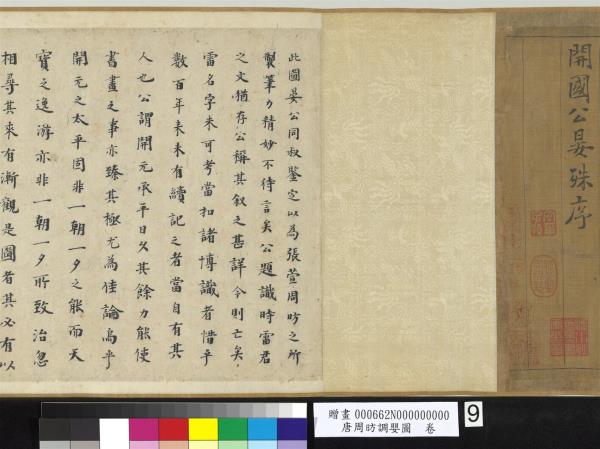 開國公晏殊序
此圖晏公同叔鑒定以為張萱周昉之所
製筆力精妙不待言矣公題識時雷君
之文猶存公稱其叙之甚詳今則亡矣
雷名字未可考當扣諸博識者惜乎
數百年来未有續記之者當自有其
人也公謂開元承平日久其餘力能使
書畫之事亦臻其極尤為佳論烏乎
開元之太平固非一朝一夕之能而天
寶之逸游亦非一朝一夕所致治忽
相尋其來有漸觀是圖者其必有以
贈畫 000662N000000000
唐周昉調嬰圖 卷
9